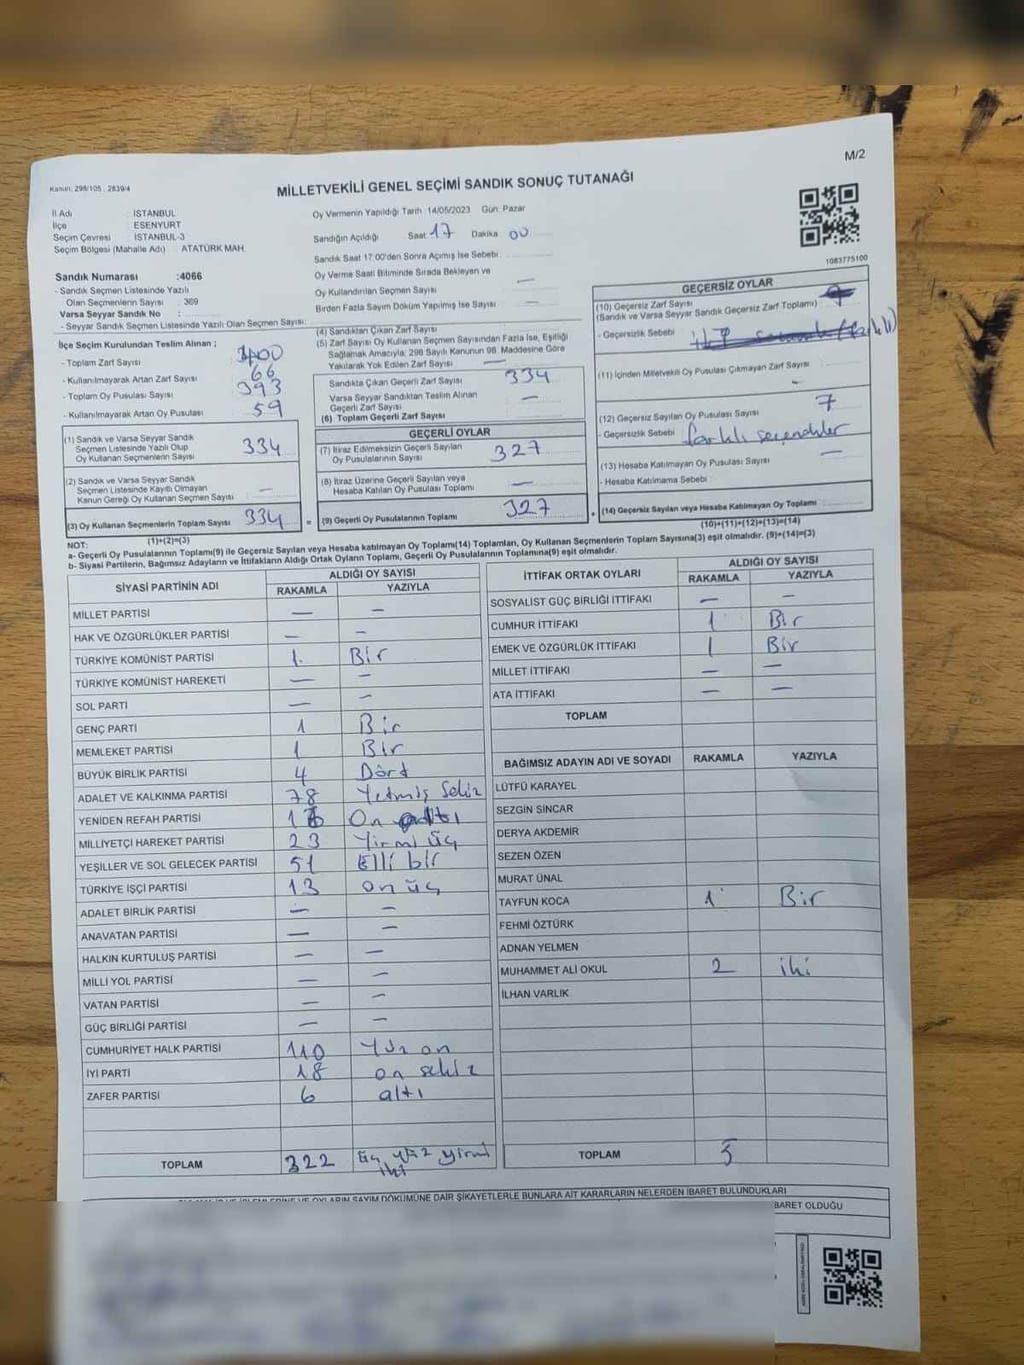 M/2
Kanun: 298/105 , 2839/4
MİLLETVEKİLİ GENEL SEÇİMİ SANDIK SONUÇ TUTANAĞI
İl Adı : İSTANBUL
İlçe : ESENYURT
Seçim Çevresi : İSTANBUL-3
Seçim Bölgesi (Mahalle Adı) : ATATÜRK MAH.
Oy Vermenin Yapıldığı Tarih :14/05/2023 Gün: Pazar
Sandığın Açıldığı Saat: 17 Dakika 00
Sandık Saat 17:00'den Sonra Açılmış İse Sebebi
Oy Verme Saati Bitiminde Sırada Bekleyen ve
Oy Kullandırılan Seçmen Sayısı —
Birden Fazla Sayım Döküm Yapılmış İse Sayısı —
1083775100
Sandık Numarası :4066
- Sandık Seçmen Listesinde Yazılı
Olan Seçmenlerin Sayısı : 369
Varsa Seyyar Sandık No :
- Seyyar Sandık Seçmen Listesinde Yazılı Olan Seçmen Sayısı:
İlçe Seçim Kurulundan Teslim Alınan ;
- Toplam Zarf Sayısı 400
- Kullanılmayarak Artan Zarf Sayısı 66
- Toplam Oy Pusulası Sayısı 393
- Kullanılmayarak Artan Oy Pusulası 59
(1) Sandık ve Varsa Seyyar Sandık
Seçmen Listesinde Yazılı Olup
Oy Kullanan Seçmenlerin Sayısı 334
(2) Sandık ve Varsa Seyyar Sandık
Seçmen Listesinde Kayıtlı Olmayan
Kanun Gereği Oy Kullanan Seçmen Sayısı —
(3) Oy Kullanan Seçmenlerin Toplam Sayısı 334
(1)+(2)=(3)
(4) Sandıktan Çıkan Zarf Sayısı
(5) Zarf Sayısı Oy Kullanan Seçmen Sayısından Fazla İse, Eşitliği
Sağlamak Amacıyla; 298 Sayılı Kanunun 98. Maddesine Göre
Yakılarak Yok Edilen Zarf Sayısı —
Sandıkta Çıkan Geçerli Zarf Sayısı 334
Varsa Seyyar Sandıktan Teslim Alınan
Geçerli Zarf Sayısı —
(6) Toplam Geçerli Zarf Sayısı
GEÇERLİ OYLAR
(7) İtiraz Edilmeksizin Geçerli Sayılan
Oy Pusulalarının Sayısı 327
(8) İtiraz Üzerine Geçerli Sayılan veya
Hesaba Katılan Oy Pusulası Toplamı —
= (9) Geçerli Oy Pusulalarının Toplamı 327
GEÇERSİZ OYLAR
(10) Geçersiz Zarf Sayısı
(Sandık ve Varsa Seyyar Sandık Geçersiz Zarf Toplamı)
- Geçersizlik Sebebi
(11) İçinden Milletvekili Oy Pusulası Çıkmayan Zarf Sayısı
-
(12) Geçersiz Sayılan Oy Pusulası Sayısı 7
- Geçersizlik Sebebi farklı seçenekler
(13) Hesaba Katılmayan Oy Pusulası Sayısı —
- Hesaba Katılmama Sebebi
(14) Geçersiz Sayılan veya Hesaba Katılmayan Oy Toplamı
(10)+(11)+(12)+(13)=(14)
NOT:
a- Geçerli Oy Pusulalarının Toplamı(9) ile Geçersiz Sayılan veya Hesaba katılmayan Oy Toplamı(14) Toplamları, Oy Kullanan Seçmenlerin Toplam Sayısına(3) eşit olmalıdır. (9)+(14)=(3)
b- Siyasi Partilerin, Bağımsız Adayların ve İttifakların Aldığı Ortak Oyların Toplamı, Geçerli Oy Pusulalarının Toplamına(9) eşit olmalıdır.
SİYASİ PARTİNİN ADI ALDIĞI OY SAYISI
RAKAMLA YAZIYLA
MİLLET PARTİSİ — —
HAK VE ÖZGÜRLÜKLER PARTİSİ — —
TÜRKİYE KOMÜNİST PARTİSİ 1 Bir
TÜRKİYE KOMÜNİST HAREKETİ — —
SOL PARTİ — —
GENÇ PARTİ 1 Bir
MEMLEKET PARTİSİ 1 Bir
BÜYÜK BİRLİK PARTİSİ 4 Dört
ADALET VE KALKINMA PARTİSİ 78 Yetmiş Sekiz
YENİDEN REFAH PARTİSİ 16 On altı
MİLLİYETÇİ HAREKET PARTİSİ 23 Yirmi üç
YEŞİLLER VE SOL GELECEK PARTİSİ 51 Elli bir
TÜRKİYE İŞÇİ PARTİSİ 13 on üç
ADALET BİRLİK PARTİSİ — —
ANAVATAN PARTİSİ — —
HALKIN KURTULUŞ PARTİSİ — —
MİLLİ YOL PARTİSİ — —
VATAN PARTİSİ — —
GÜÇ BİRLİĞİ PARTİSİ — —
CUMHURİYET HALK PARTİSİ 110 Yüz on
İYİ PARTİ 18 on sekiz
ZAFER PARTİSİ 6 altı
TOPLAM 322 Üç yüz yirmi
iki
İTTİFAK ORTAK OYLARI ALDIĞI OY SAYISI
RAKAMLA YAZIYLA
SOSYALİST GÜÇ BİRLİĞİ İTTİFAKI — —
CUMHUR İTTİFAKI 1 Bir
EMEK VE ÖZGÜRLÜK İTTİFAKI 1 Bir
MİLLET İTTİFAKI — —
ATA İTTİFAKI — —
TOPLAM
BAĞIMSIZ ADAYIN ADI VE SOYADI RAKAMLA YAZIYLA
LÜTFÜ KARAYEL
SEZGİN SİNCAR
DERYA AKDEMİR
SEZEN ÖZEN
MURAT ÜNAL
TAYFUN KOCA 1 Bir
FEHMİ ÖZTÜRK
ADNAN YELMEN
MUHAMMET ALİ OKUL 2 iki
İLHAN VARLIK
TOPLAM 5
OYLARIN SAYIM DÖKÜMÜNE DAİR ŞİKAYETLERLE BUNLARA AİT KARARLARIN NELERDEN İBARET BULUNDUKLARI
BARET OLDUĞU